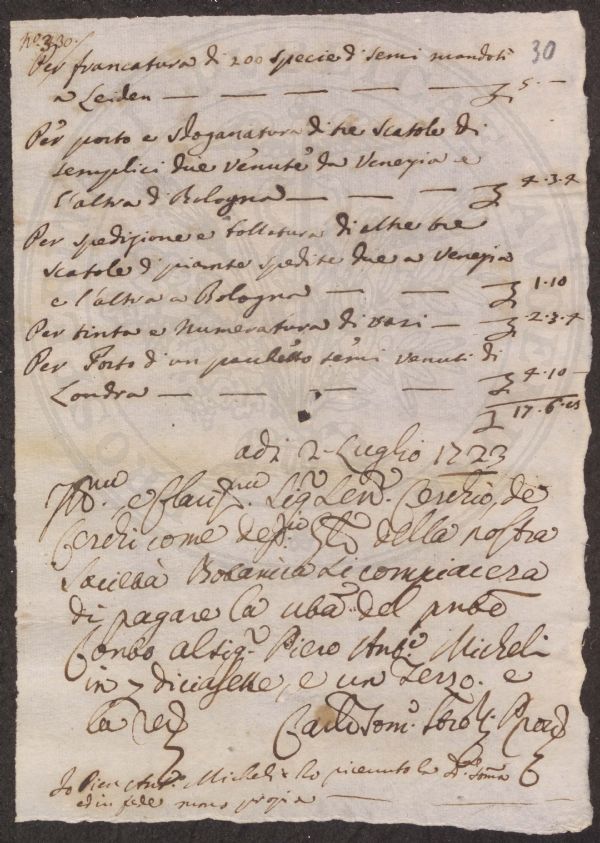 30
Per francatura di 200 specie di semi mandati
a Leiden — — — — 5 —
Per porto e sdoganatura di tre scatole di
semplici due venute da Venezia e
l'altra di Bologna — — — 4.3.4
Per spedizione e bollatura di altre tre
scatole di piante spedite due a Venezia
e l'altra a Bologna — — — 1.10
Per tinta e numeratura di vasi — 2.3.4
Per Porto d'un pacchetto semi venuti di
Londra — — — — 4.10 —
17.6.
adi 2 Luglio 1723
Cerchio de
Cerchi come della nostra
Società Botanica si compiacerà
di pagare la del
Conto al Sig.r Piero Ant.o Micheli
in diciasette, e un terzo. e

Io Pier Ant.o Micheli ho ricevuto la Somma
ed in fede mano propria —